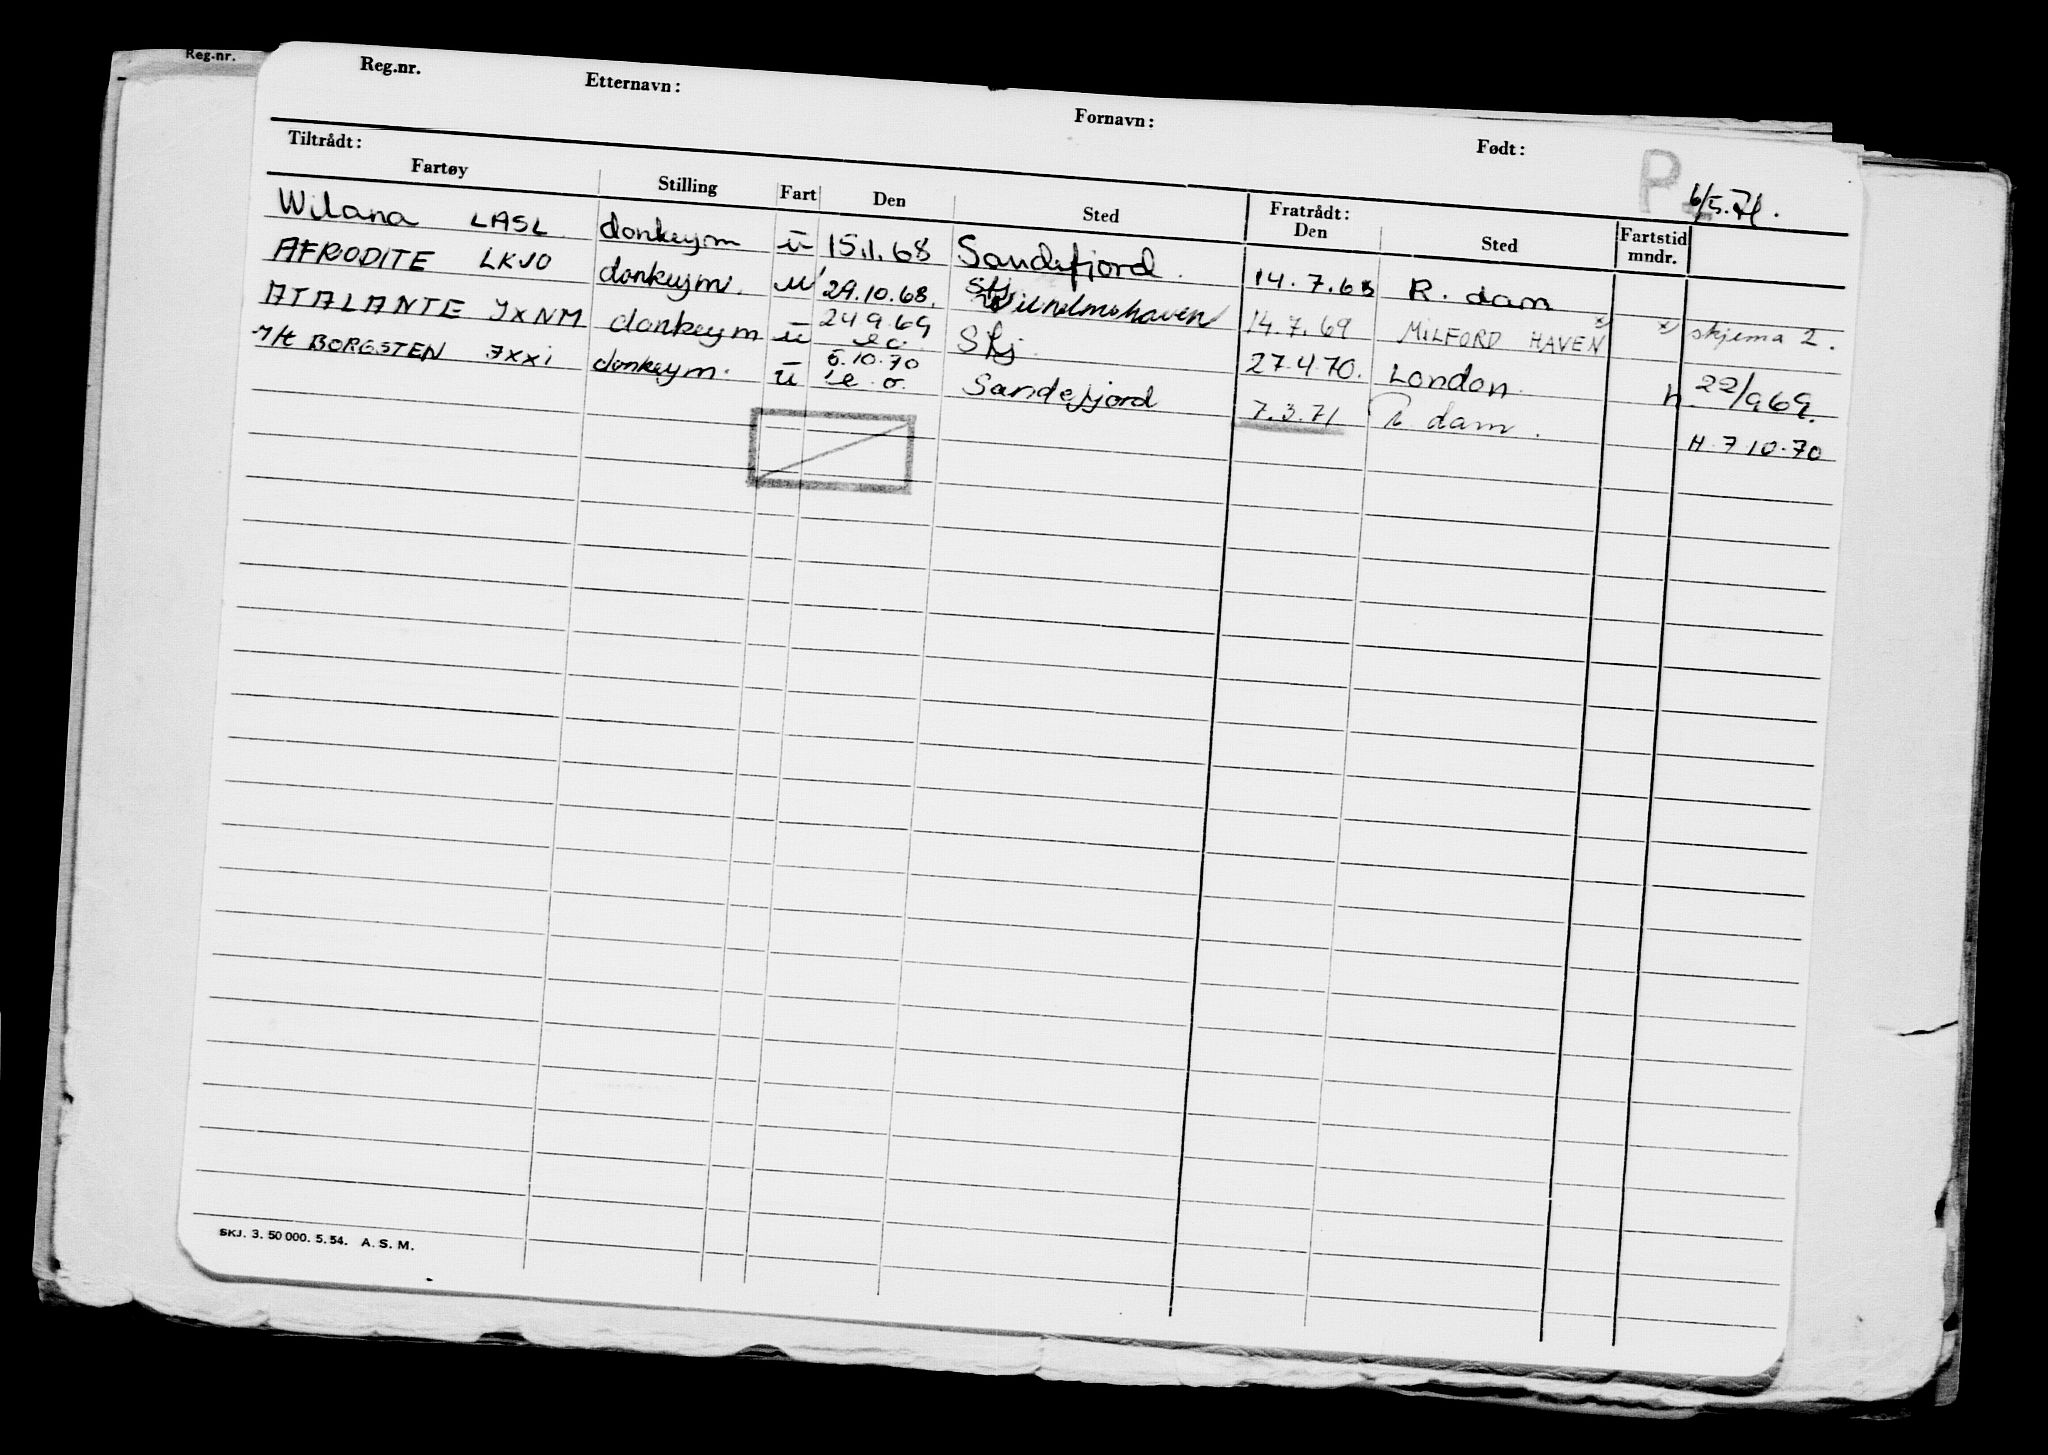 Reg.nr.
Reg.nr. Etternavn: Fornavn: Født:
P 6/5.71.
Tiltrådt: Fratrådt:
Fartøy Stilling Fart Den Sted Den Sted Fartstid mndr.
Wilana LASL donkeym u 15.1.68 Sandefjord. 14.7.68 R.dam
AFRODITE LKJO donkeym. u 29.10.68. Sfj Wilhelmshaven 14.7.69 MILFORD HAVEN x) x) skjema 2.
ATALANTE JXNM donkeym u 24.9.69 e.o. Sfj. 27.4.70. London. h 22/9.69.
M/t BORGSTEN JXXI donkeym. u 5.10.70 e.o. Sandefjord 7.3.71 R dam. H. 7 10.70
SKJ. 3. 50 000. 5. 54. A. S. M.